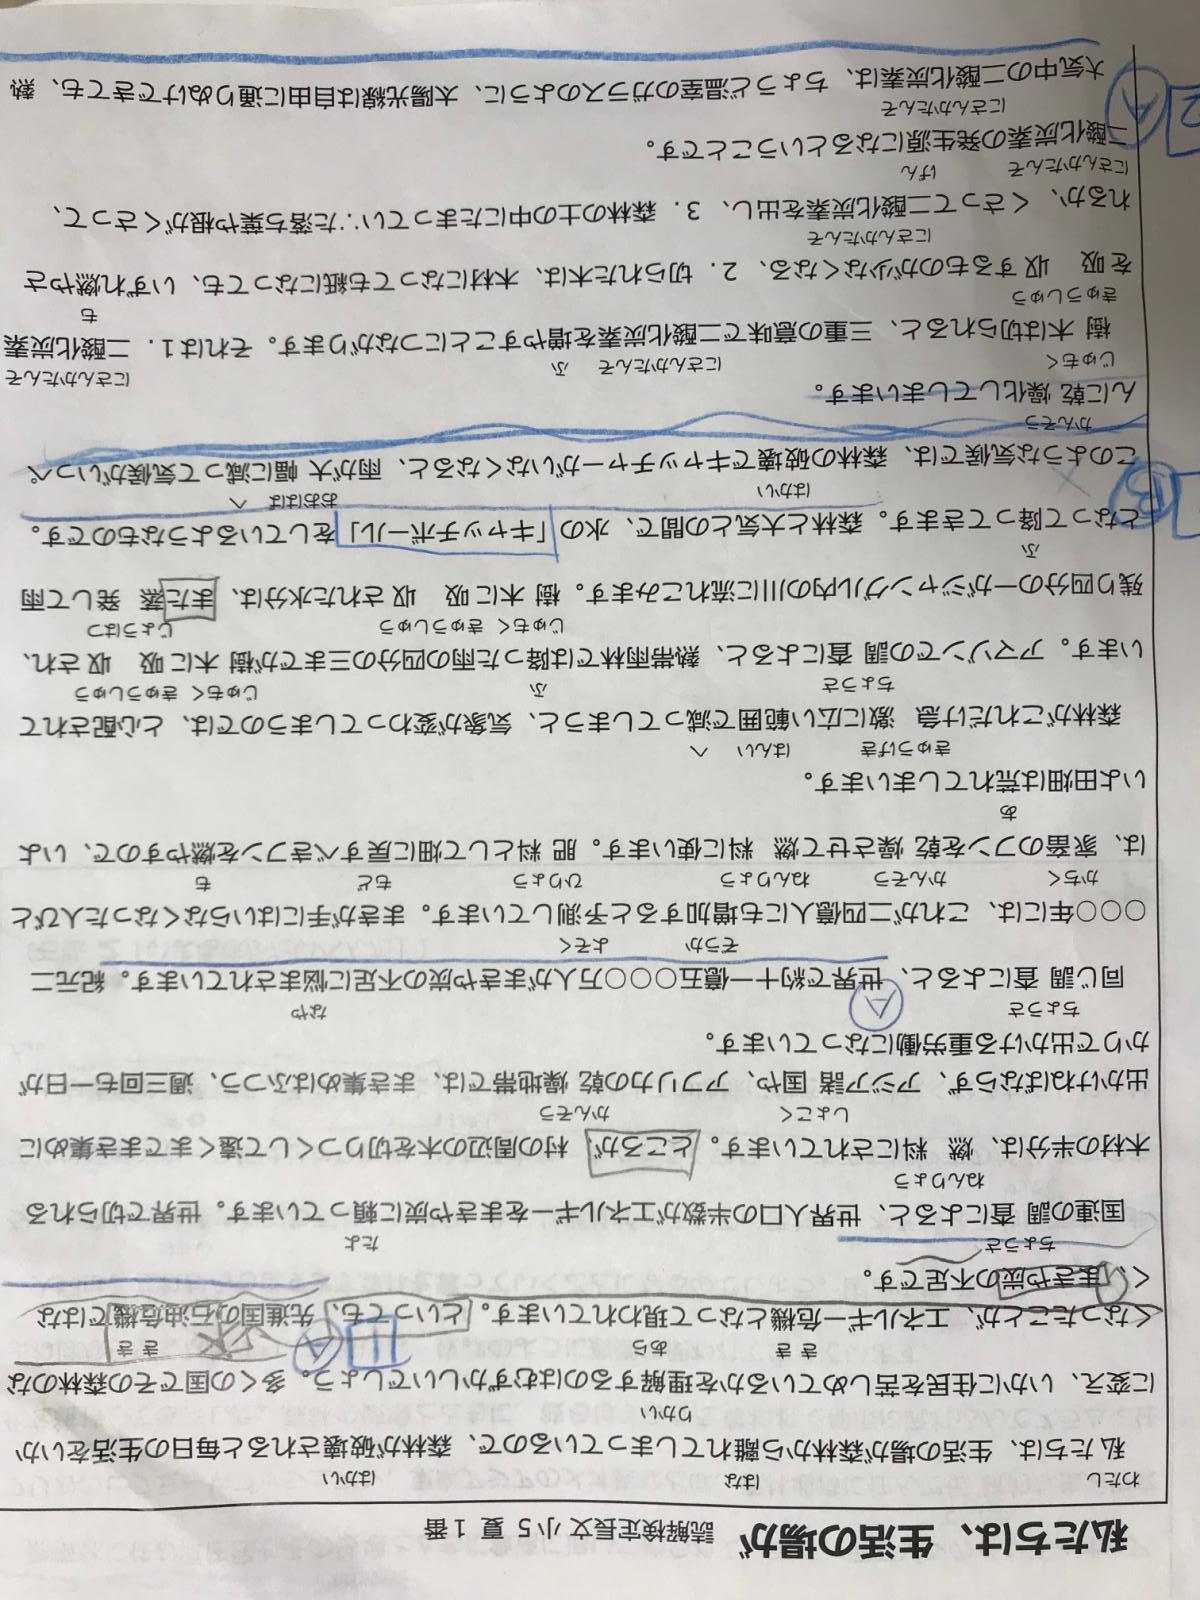 私たちは、生活の場が 読解検定長文 小5 夏 1番
わたし はな はかい
私たちは、生活の場が森林から離れてしまっているので、森林が破壊されると毎日の生活をいか
りかい
に変え、いかに住民を苦しめているかを理解するのはむずかしいでしょう。多くの国でその森林のな
きき あら きき
くなったことが、エネルギー危機となって現われています。といっても、先進国の石油危機ではな
く、まきや炭の不足です。
ちょうさ たよ
国連の調査によると、世界人口の半数がエネルギーをまきや炭に頼っています。世界で切られる
ねんりょう
木材の半分は、燃料にされています。ところが、村の周辺の木を切りつくして遠くまでまき集めに
しょこく かんそう
出かけねばならず、アジア諸国や、アフリカの乾燥地帯では、まき集めはふつう、週三回も一日が
かりで出かける重労働になっています。
ちょうさ A なや
同じ調査によると、世界で約十一億五〇〇〇万人がまきや炭の不足に悩まされています。紀元二
ぞうか よそく
〇〇〇年には、これが二四億人にも増加すると予測しています。まきが手にはいらなくなった人びと
かちく かんそう ねんりょう ひりょう もど も
は、家畜のフンを乾燥させて燃料に使います。肥料として畑に戻すべきフンを燃やすので、いよ
あ
いよ田畑は荒れてしまいます。
きゅうげき はんい へ
森林がこれだけ急激に広い範囲で減ってしまうと、気象が変わってしまうのでは、と心配されて
ちょうさ ふ じゅもく きゅうしゅう
います。アマゾンでの調査によると、熱帯雨林では降った雨の四分の三までが樹木に吸収され、
じゅもく きゅうしゅう じょうはつ
残り四分の一がジャングル内の川に流れこみます。樹木に吸収された水分は、また蒸発して雨
ふ
となって降ってきます。森林と大気との間で、水の「キャッチボール」をしているようなものです。
B はかい おおはば へ
このような気候では、森林の破壊でキャッチャーがいなくなると、雨が大幅に減って気候がいっぺ
かんそう
んに乾燥化してしまいます。
じゅもく にさんかたんそ ふ にさんかたんそ
樹木は切られると、三重の意味で二酸化炭素を増やすことにつながります。それは1．二酸化炭素
きゅうしゅう も
を吸収するものが少なくなる、2．切られた木は、木材になっても紙になっても、いずれ燃やさ
にさんかたんそ
れるか、くさって二酸化炭素を出し、3．森林の土の中にたまっていた落ち葉や根がくさって、
にさんかたんそ げん
二酸化炭素の発生源になるということです。
2 A にさんかたんそ
大気中の二酸化炭素は、ちょうど温室のガラスのように、太陽光線は自由に通りぬけできても、熱